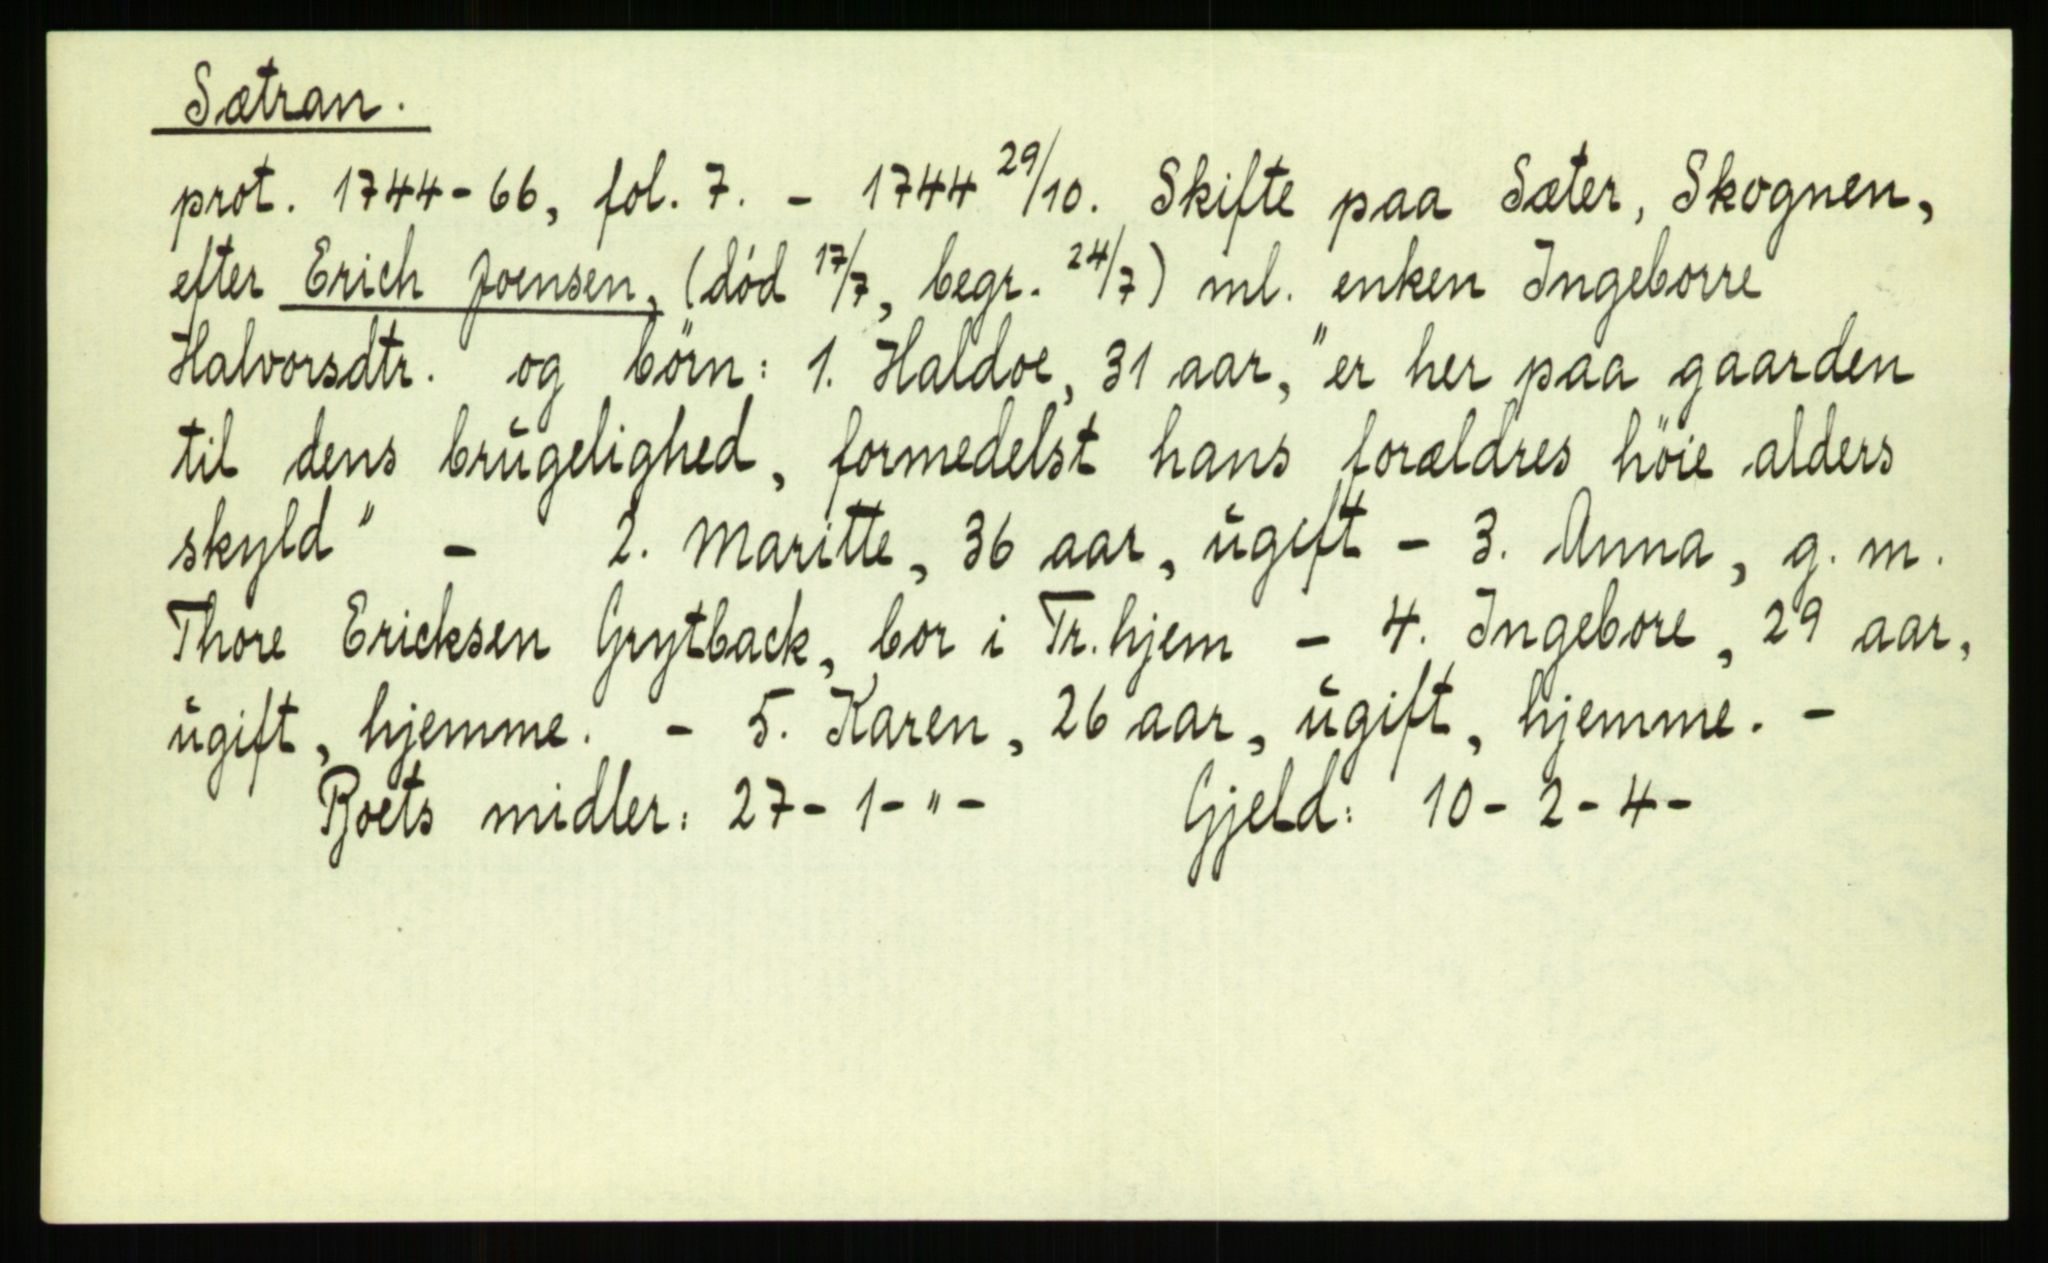 Sætran.
prot. 1744-66, fol. 7. - 1744 29/10. Skifte paa Sæter, Skognen,
efter Erich Joensen, (död 17/7, begr. 24/7) ml. enken Ingeborre
Halvorsdtr. og börn: 1. Haldoe, 31 aar, "er her paa gaarden
til dens brugelighed, formedelst hans forældres höie alders
skyld" - 2. Maritte, 36 aar, ugift - 3. Anna, g. m.
Thore Ericksen Grytback, bor i Tr.hjem - 4. Ingebore, 29 aar,
ugift, hjemme. - 5. Karen, 26 aar, ugift, hjemme. -
Boets midler: 27- 1- " - Gjeld: 10- 2- 4-